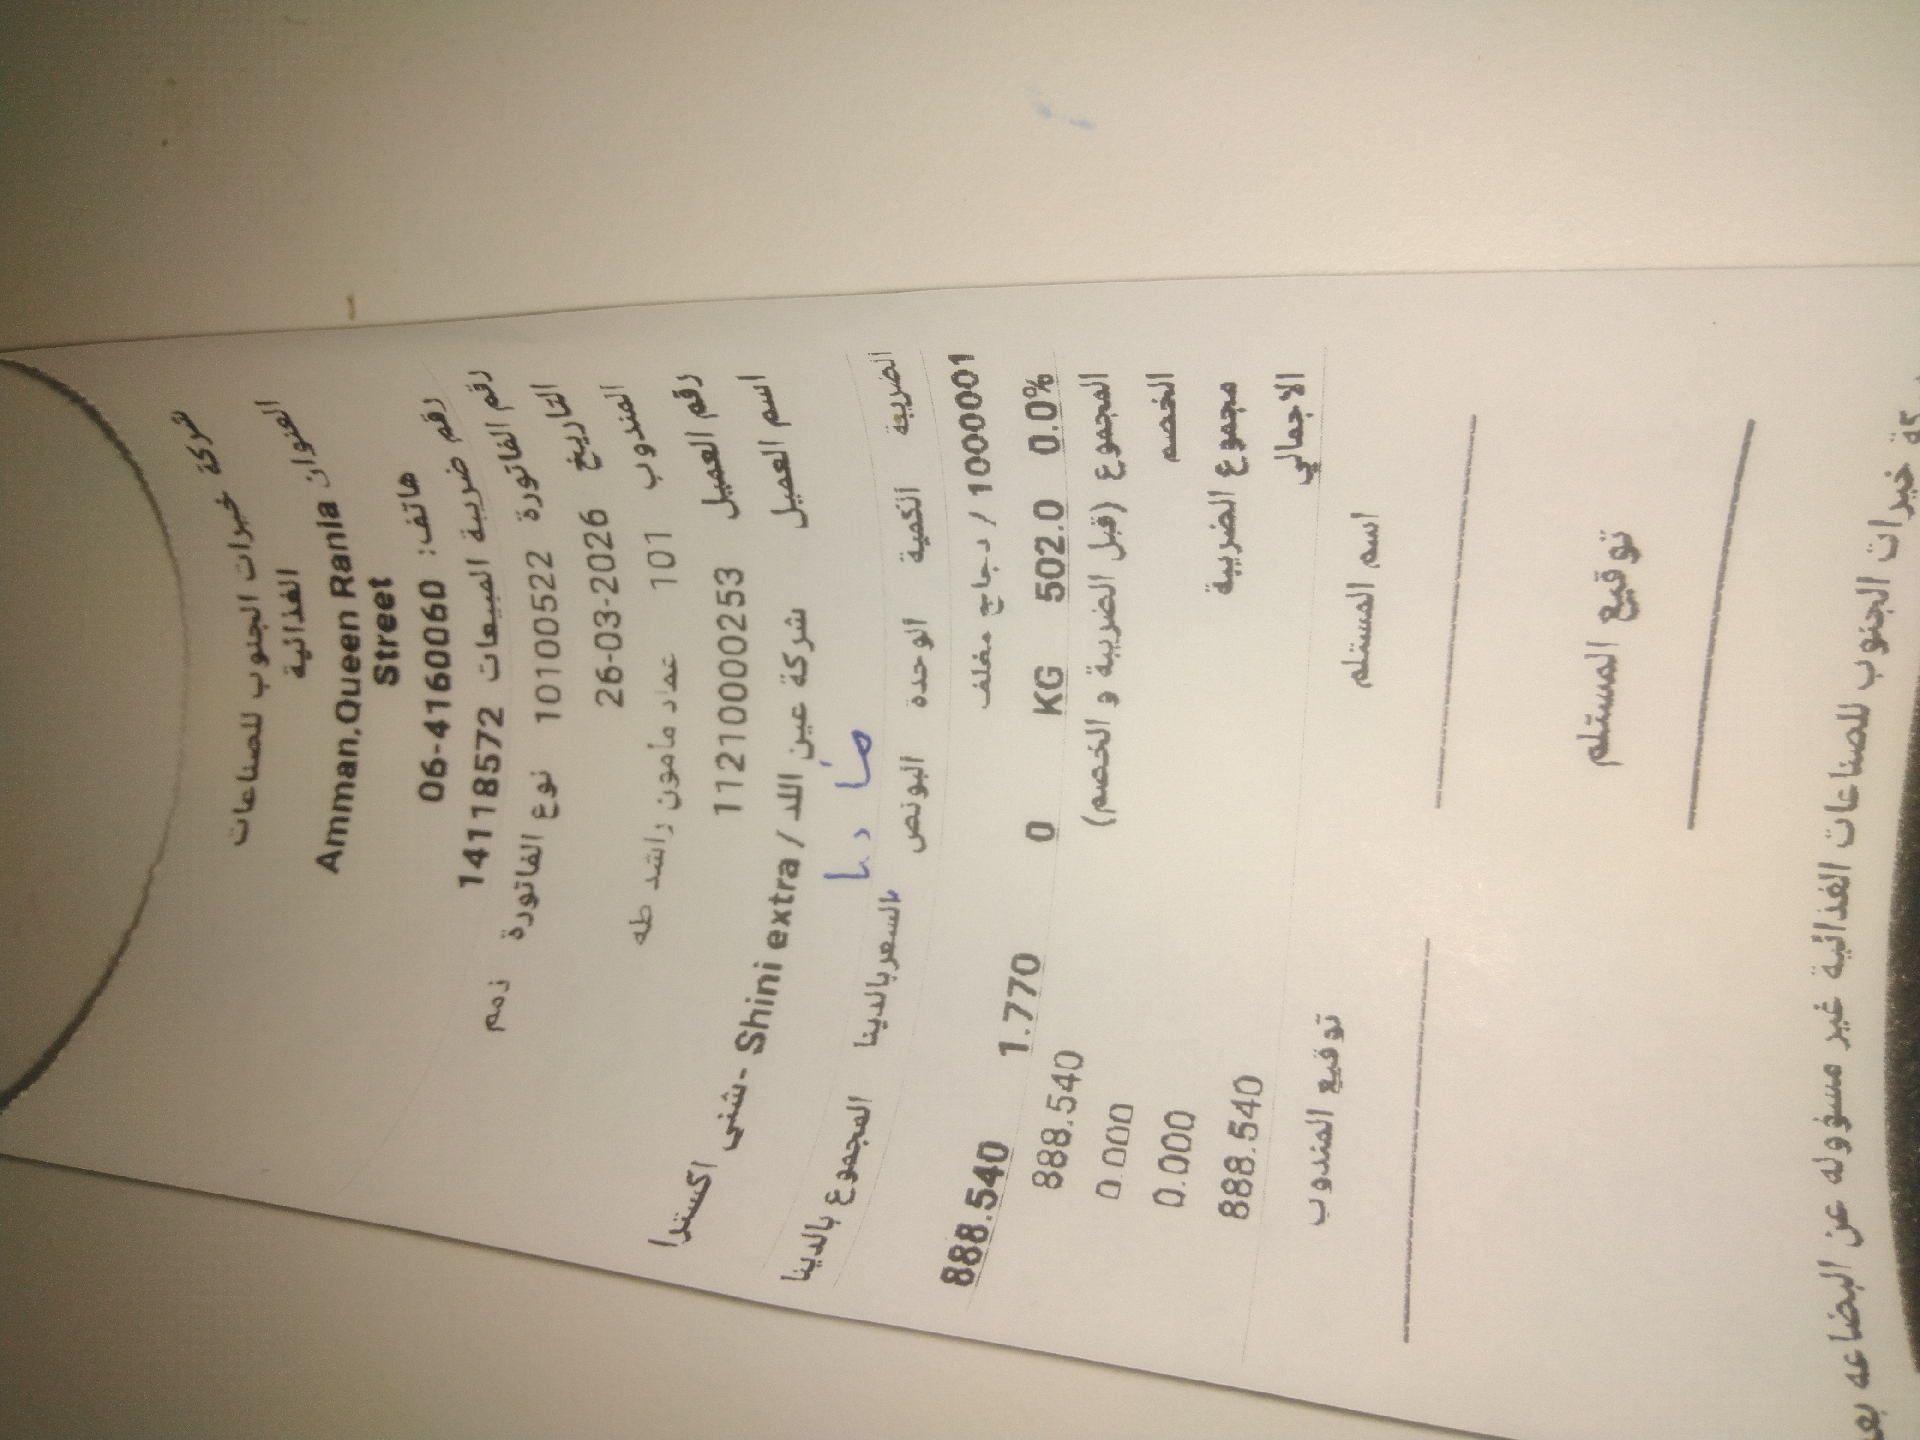 شركة خيرات الجنوب للصناعات
الغذائية
العنوان Amman,Queen Rania
Street
هاتف: 06-4160060
رقم ضريبة المبيعات 14118572
رقم الفاتورة 10100522 نوع الفاتورة ذمم
التاريخ 26-03-2026
المندوب 101 عماد مأمون راشد طه
رقم العميل 1121000253
اسم العميل شركة عين الله / Shini extra - شني اكسترا
الضريبة الكمية الوحدة البونص السعر بالدينا المجموع بالدينا
1000001 / دجاج مغلف
0.0% 502.0 KG 0 1.770 888.540
المجموع (قبل الضريبة و الخصم) 888.540
الخصم 0.000
مجموع الضريبة 0.000
الاجمالي 888.540
اسم المستلم توقيع المندوب
توقيع المستلم
كة خيرات الجنوب للصناعات الغذائية غير مسؤوله عن البضاعه بعد